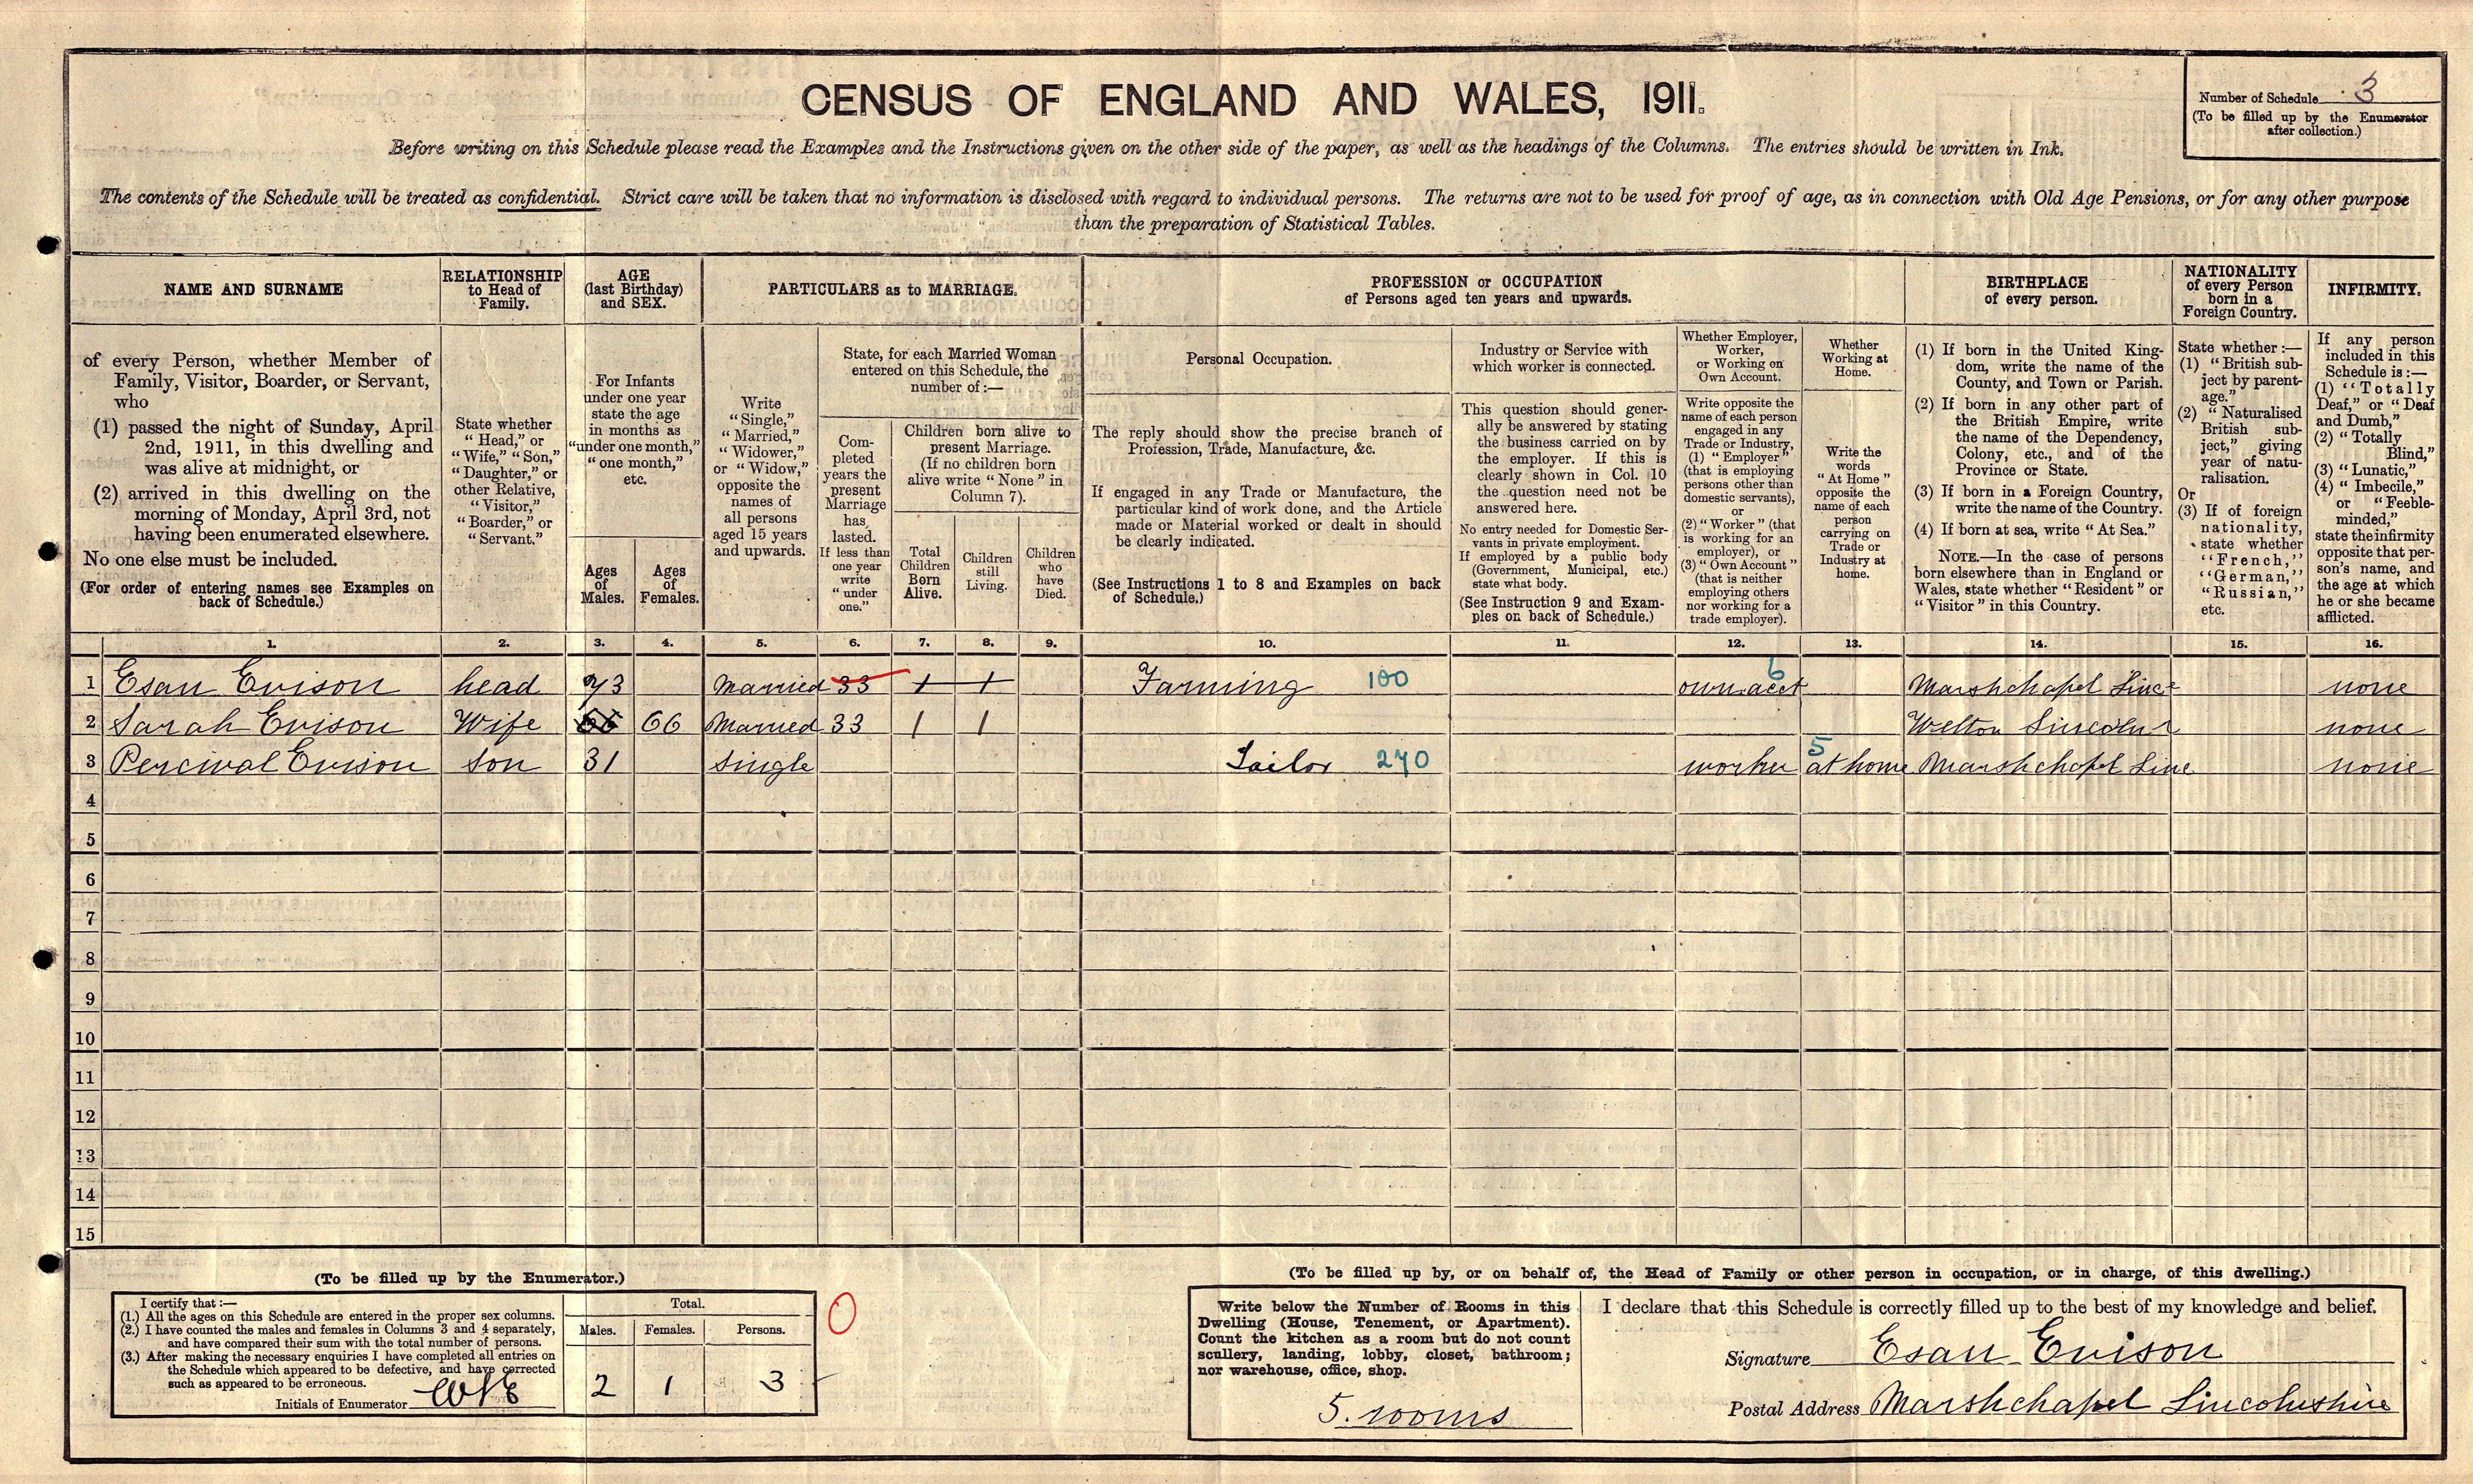 CENSUS OF ENGLAND AND WALES, 1911.
Number of Schedule 3
(To be filled up by the Enumerator
after collection.)
Before writing on this Schedule please read the Examples and the Instructions given on the other side of the paper, as well as the headings of the Columns. The entries should be written in Ink.
The contents of the Schedule will be treated as confidential. Strict care will be taken that no information is disclosed with regard to individual persons. The returns are not to be used for proof of age, as in connection with Old Age Pensions, or for any other purpose
than the preparation of Statistical Tables.
NAME AND SURNAME
of every Person, whether Member of
Family, Visitor, Boarder, or Servant,
who
(1) passed the night of Sunday, April
2nd, 1911, in this dwelling and
was alive at midnight, or
(2) arrived in this dwelling on the
morning of Monday, April 3rd, not
having been enumerated elsewhere.
No one else must be included.
(For order of entering names see Examples on
back of Schedule.)
RELATIONSHIP
to Head of
Family.
State whether
"Head," or
"Wife," "Son,"
"Daughter," or
other Relative,
"Visitor,"
"Boarder," or
"Servant."
AGE
(last Birthday)
and SEX.
For Infants
under one year
state the age
in months as
"under one month,"
"one month,"
etc.
Ages
of
Males.
Ages
of
Females.
PARTICULARS as to MARRIAGE.
Write
"Single,"
"Married,"
"Widower,"
or "Widow,"
opposite the
names of
all persons
aged 15 years
and upwards.
State, for each Married Woman
entered on this Schedule, the
number of:—
Com-
pleted
years the
present
Marriage
has
lasted.
If less than
one year
write
"under
one."
Children born alive to
present Marriage.
(If no children born
alive write "None" in
Column 7).
Total
Children
Born
Alive.
Children
still
Living.
Children
who
have
Died.
PROFESSION or OCCUPATION
of Persons aged ten years and upwards.
Personal Occupation.
The reply should show the precise branch of
Profession, Trade, Manufacture, &c.
If engaged in any Trade or Manufacture, the
particular kind of work done, and the Article
made or Material worked or dealt in should
be clearly indicated.
(See Instructions 1 to 8 and Examples on back
of Schedule.)
Industry or Service with
which worker is connected.
This question should gener-
ally be answered by stating
the business carried on by
the employer. If this is
clearly shown in Col. 10
the question need not be
answered here.
No entry needed for Domestic Ser-
vants in private employment.
If employed by a public body
(Government, Municipal, etc.)
state what body.
(See Instruction 9 and Exam-
ples on back of Schedule.)
Whether Employer,
Worker,
or Working on
Own Account.
Write opposite the
name of each person
engaged in any
Trade or Industry,
(1) "Employer"
(that is employing
persons other than
domestic servants),
or
(2) "Worker" (that
is working for an
employer), or
(3) "Own Account"
(that is neither
employing others
nor working for a
trade employer).
Whether
Working at
Home.
Write the
words
"At Home"
opposite the
name of each
person
carrying on
Trade or
Industry at
home.
BIRTHPLACE
of every person.
(1) If born in the United King-
dom, write the name of the
County, and Town or Parish.
(2) If born in any other part of
the British Empire, write
the name of the Dependency,
Colony, etc., and of the
Province or State.
(3) If born in a Foreign Country,
write the name of the Country.
(4) If born at sea, write "At Sea."
NOTE.—In the case of persons
born elsewhere than in England or
Wales, state whether "Resident" or
"Visitor" in this Country.
NATIONALITY
of every Person
born in a
Foreign Country.
State whether:—
(1) "British sub-
ject by parent-
age."
(2) "Naturalised
British sub-
ject," giving
year of natu-
ralisation.
Or
(3) If of foreign
nationality,
state whether
"French,"
"German,"
"Russian,"
etc.
INFIRMITY.
If any person
included in this
Schedule is:—
(1) "Totally
Deaf," or "Deaf
and Dumb,"
(2) "Totally
Blind,"
(3) "Lunatic,"
(4) "Imbecile,"
or "Feeble-
minded,"
state the infirmity
opposite that per-
son's name, and
the age at which
he or she became
afflicted.
1. 2. 3. 4. 5. 6. 7. 8. 9. 10. 11. 12. 13. 14. 15. 16.
1 Esau Evison head 73 Married 33 1 1 Farming 100 own acct 6 Marshchapel Linc none
2 Sarah Evison Wife 66 66 Married 33 1 1 Welton Lincoln none
3 Percival Evison Son 31 Single Tailor 270 worker 5 at home Marshchapel Linc none
4
5
6
7
8
9
10
11
12
13
14
15
(To be filled up by the Enumerator.)
I certify that:—
(1.) All the ages on this Schedule are entered in the proper sex columns.
(2.) I have counted the males and females in Columns 3 and 4 separately,
and have compared their sum with the total number of persons.
(3.) After making the necessary enquiries I have completed all entries on
the Schedule which appeared to be defective, and have corrected
such as appeared to be erroneous.
Initials of Enumerator
Total.
Males. Females. Persons.
2 1 3
0
(To be filled up by, or on behalf of, the Head of Family or other person in occupation, or in charge, of this dwelling.)
Write below the Number of Rooms in this
Dwelling (House, Tenement, or Apartment).
Count the kitchen as a room but do not count
scullery, landing, lobby, closet, bathroom;
nor warehouse, office, shop.
5. rooms
I declare that this Schedule is correctly filled up to the best of my knowledge and belief.
Signature Esau Evison
Postal Address Marshchapel Lincolnshire